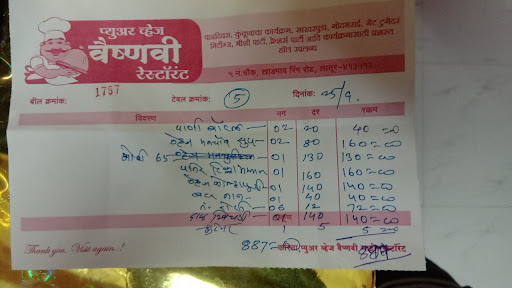 प्युअर व्हेज
वैष्णवी
रेस्टॉरंट
वाढदिवस, कुंकवाचा कार्यक्रम, साखरपुडा, गेट टुगेदर
भिशी पार्टी, आदि कार्यक्रमासाठी प्रशस्त
हॉल उपलब्ध
५ नं. चौक, रिंग रोड, लातूर-४१३५१२
बील क्रमांक: 1757 टेबल क्रमांक: 5 दिनांक: 25/9
विवरण नग दर रक्कम
पाणी बॉटल 02 20 40=00
व्हेज मनचाव सुप 02 80 160=00
गोबी 65 01 130 130=00
पनीर टिक्का मसाला 01 160 160=00
व्हेज कोल्हापुरी 01 140 140=00
बटर नान 01 40 40=00
तं. रोटी 06 12 72=00
दाल खिचडी 01 140 140=00
1 5 5=00
887=00
Thank you, Visit again..! करिता प्युअर व्हेज वैष्णवी रेस्टॉरंट